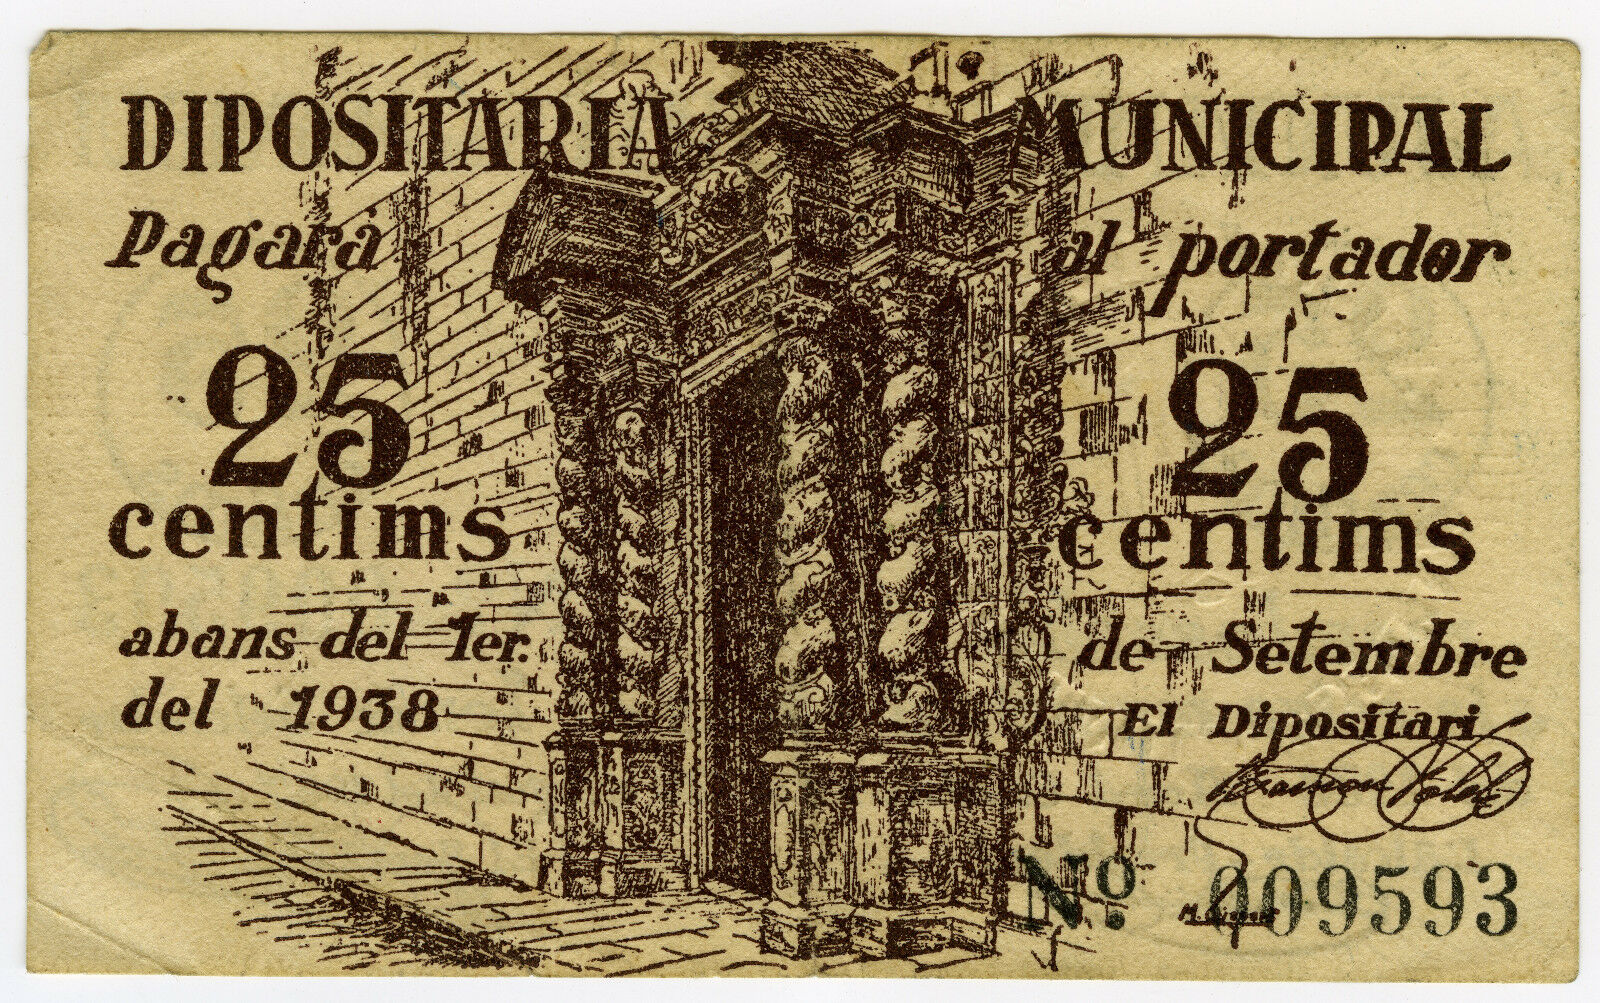 DIPOSITARIA MUNICIPAL
Pagarà al portador
25 25
centims centims
abans del 1er. de Setembre
del 1938 El Dipositari
Nº 009593